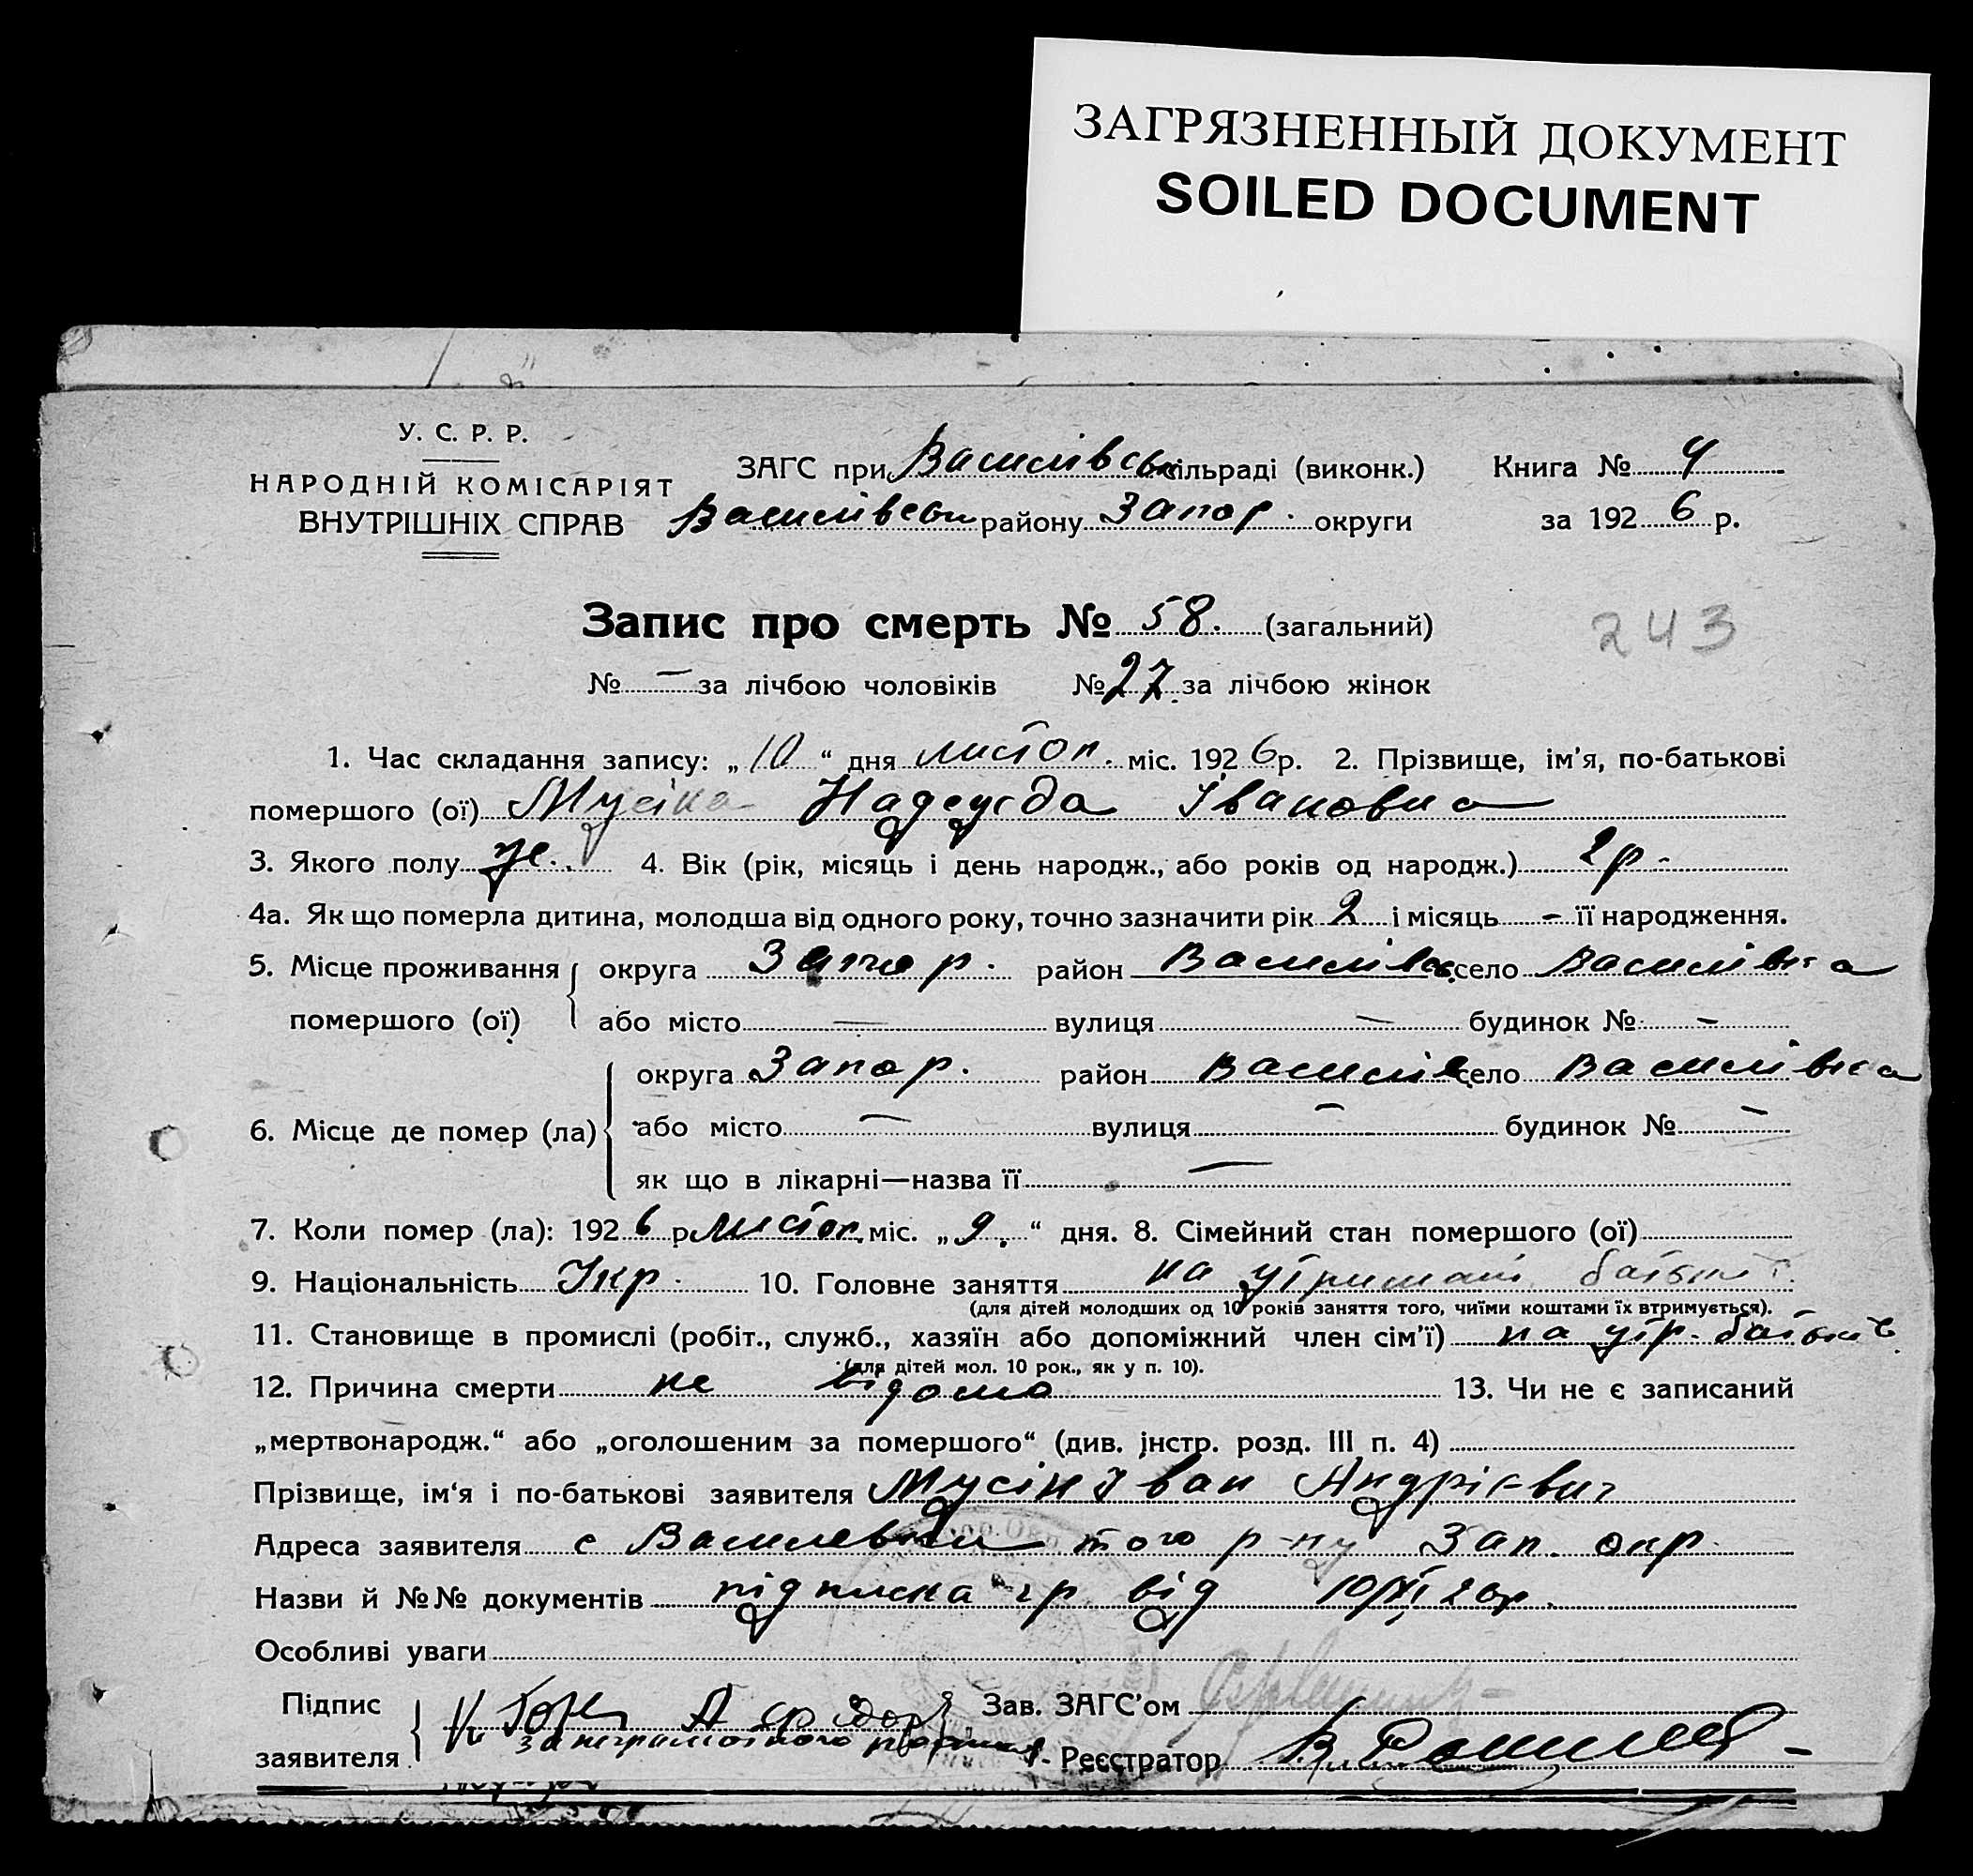 ЗАГРЯЗНЕННЫЙ ДОКУМЕНТ
SOILED DOCUMENT
У. С. Р. Р.
НАРОДНІЙ КОМІСАРІЯТ
ВНУТРІШНІХ СПРАВ
ЗАГС при Василівськ сільраді (виконк.)
Василівськ району Запор. округи
Книга № 4
за 1926 р.
Запис про смерть № 58. (загальний)
243
№ — за лічбою чоловіків № 27. за лічбою жінок
1. Час складання запису: „10“ дня листоп. міс. 1926 р. 2. Прізвище, ім'я, по-батькові
помершого (ої) Мусіна Надежда Івановна
3. Якого полу ж. 4. Вік (рік, місяць і день народж., або років од народж.) 2 р.
4а. Як що померла дитина, молодша від одного року, точно зазначити рік 2 і місяць - її народження.
5. Місце проживання помершого (ої) округа Запор. район Василівськ село Василівка
або місто — вулиця — будинок № —
6. Місце де помер (ла) округа Запор. район Василів село Василівка
або місто — вулиця — будинок № —
як що в лікарні—назва її —
7. Коли помер (ла): 1926 р. листоп. міс. „9.“ дня. 8. Сімейний стан помершого (ої)
9. Національність Укр. 10. Головне заняття на утримані батьків
(для дітей молодших од 10 років заняття того, чиїми коштами їх втримується).
11. Становище в промислі (робіт., служб., хазяїн або допоміжний член сім'ї) на утр. батьків
(для дітей мол. 10 рок., як у п. 10).
12. Причина смерти не відома 13. Чи не є записаний
„мертвонародж.“ або „оголошеним за помершого“ (див. інстр. розд. III п. 4)
Прізвище, ім'я і по-батькові заявителя Мусін Іван Андрієвич
Адреса заявителя с Василевки того р-ну Зап. окр.
Назви й №№ документів підписка гр. від 10/XI 26р.
Особливі уваги
Підпис заявителя
за неграмотного
Зав. ЗАГС'ом
Реєстратор